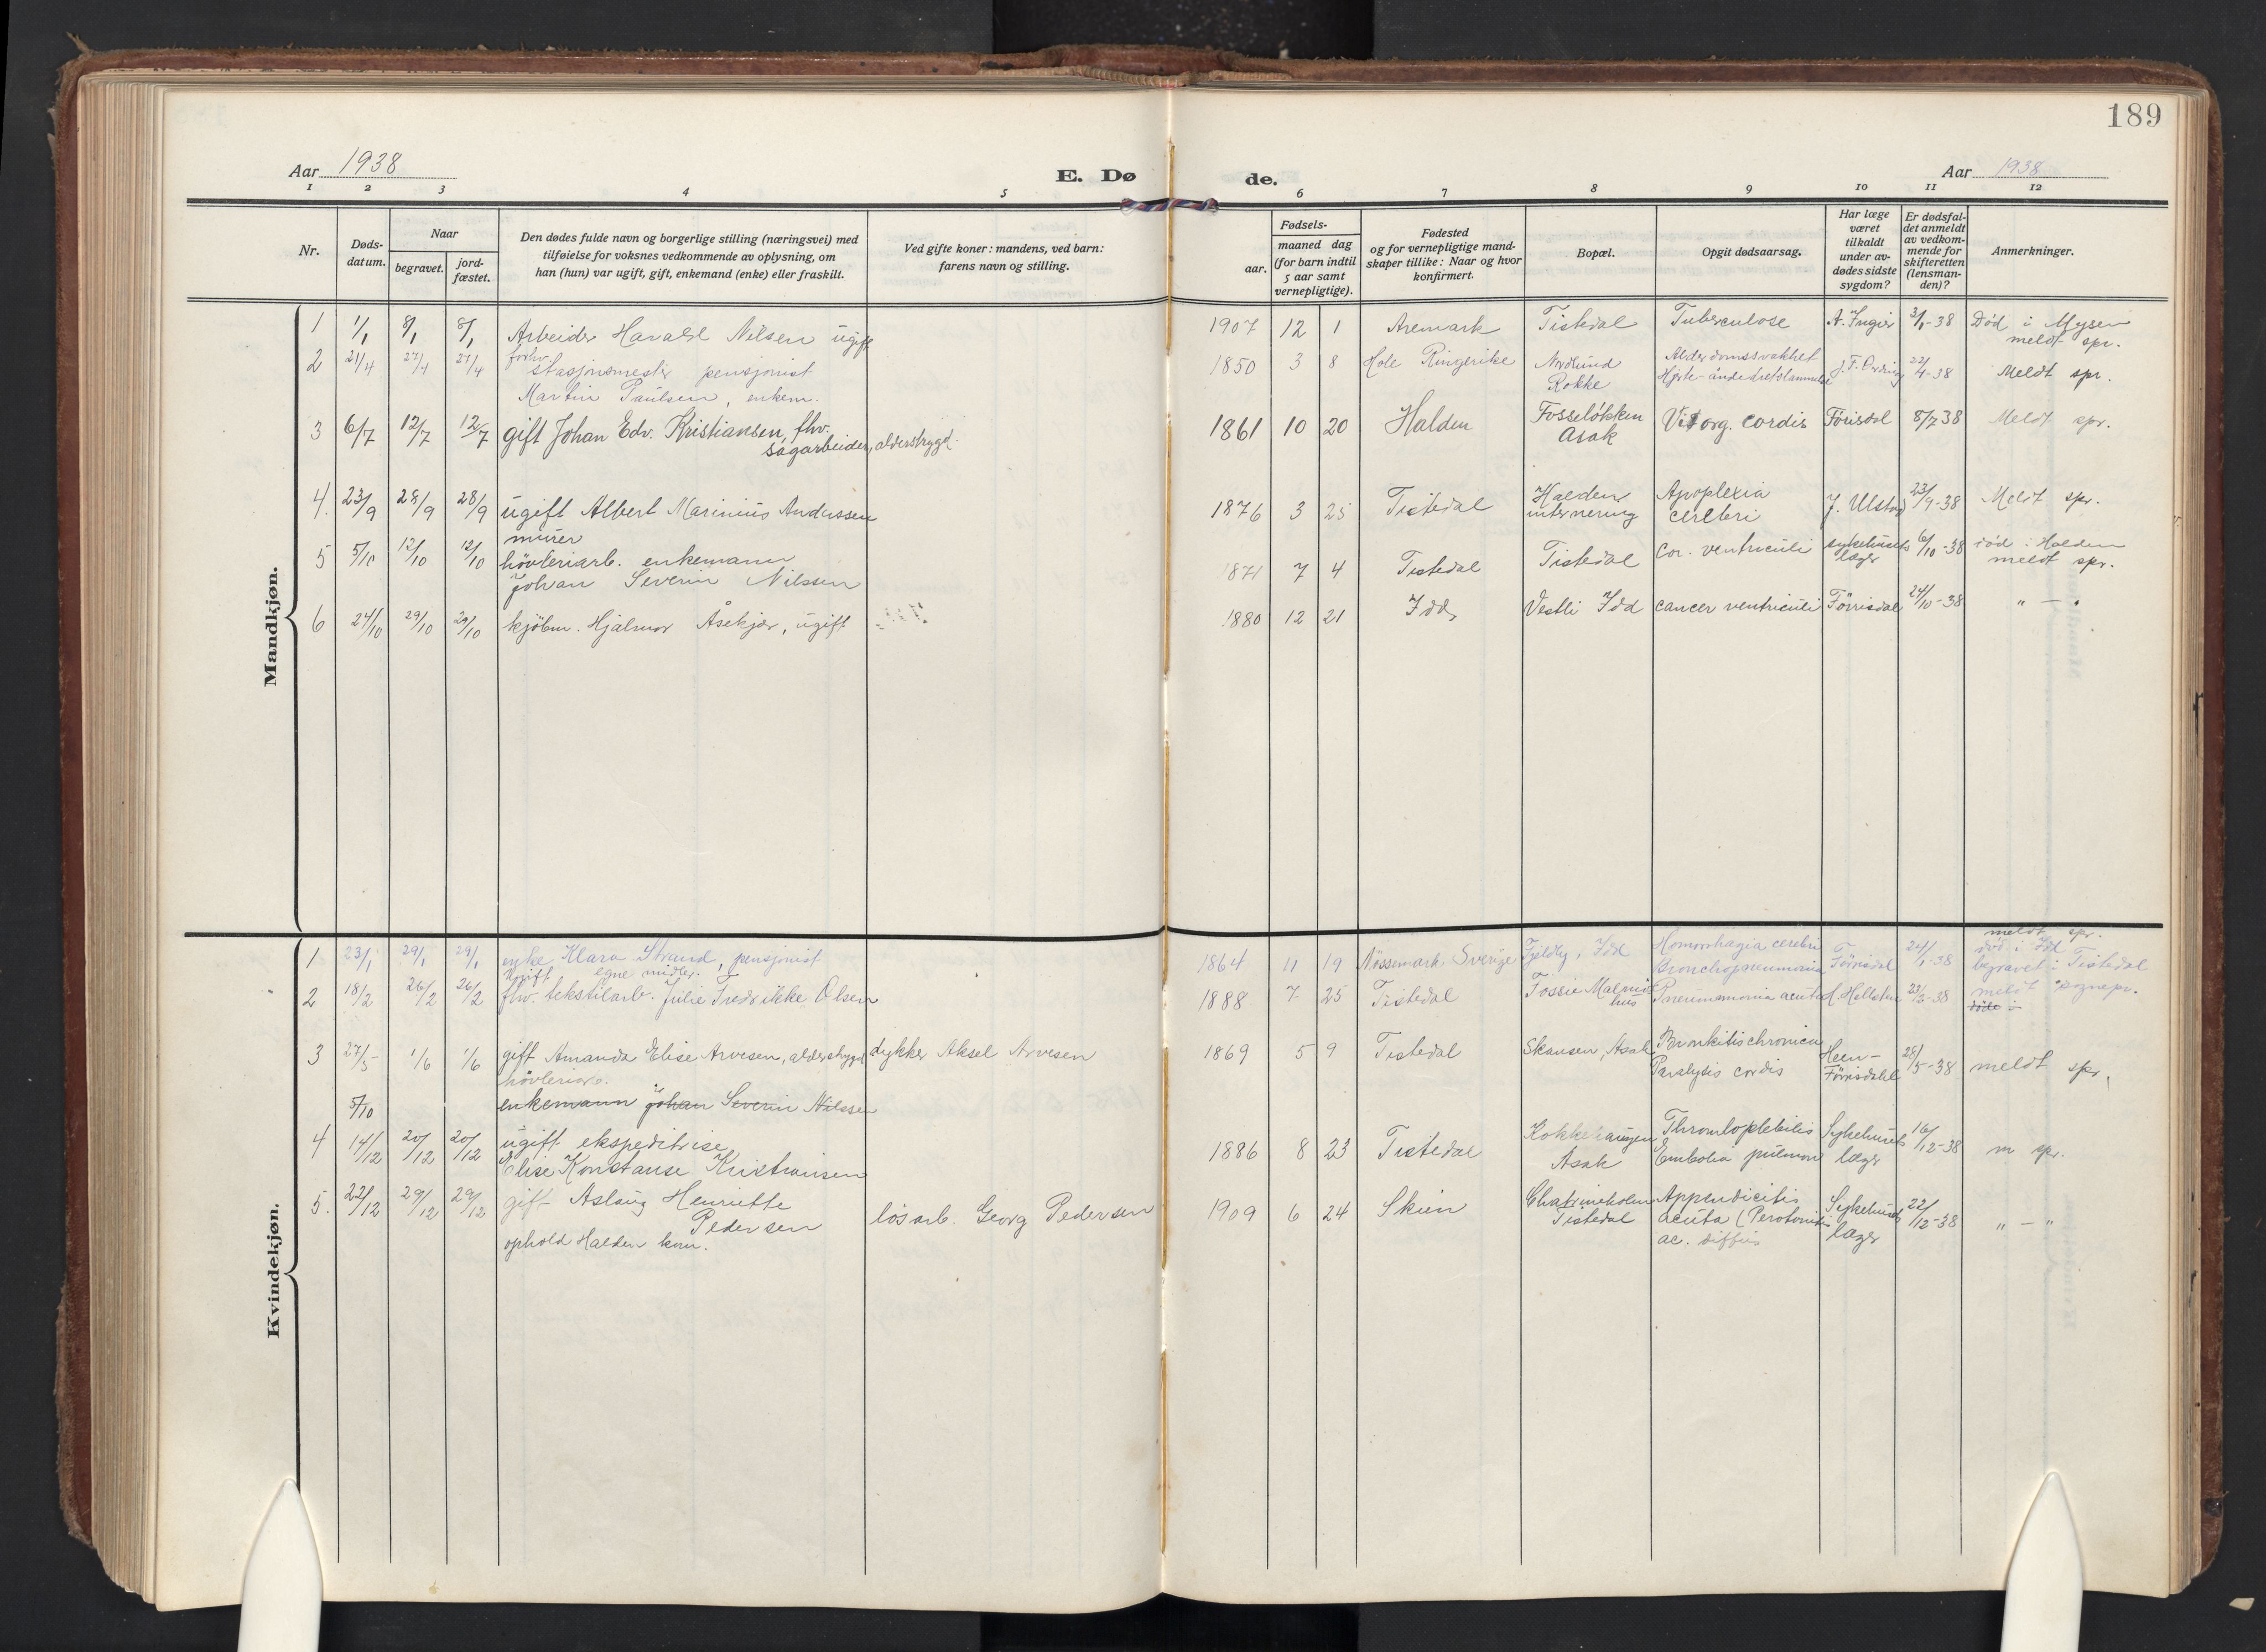 189
Aar 1938
E. Dø
de.
Aar 1938
1 2 3 4 5 6 7 8 9 10 11 12
Nr.
Døds-
datum.
Naar
begravet.
jord-
fæstet.
Den dødes fulde navn og borgerlige stilling (næringsvei) med
tilføielse for voksnes vedkommende av oplysning, om
han (hun) var ugift, gift, enkemand (enke) eller fraskilt.
Ved gifte koner: mandens, ved barn:
farens navn og stilling.
Fødsels-
aar.
maaned dag
(for barn indtil
5 aar samt
vernepligtige).
Fødested
og for vernepligtige mand-
skaper tillike: Naar og hvor
konfirmert.
Bopæl.
Opgit dødsaarsag.
Har læge
været
tilkaldt
under av-
dødes sidste
sygdom?
Er dødsfal-
det anmeldt
av vedkom-
mende for
skifteretten
(lensman-
den)?
Anmerkninger.
Mandkjøn.
1 1/1 8/1 8/1 Arbeider Harald Nilsen ugift 1907 12 1 Aremark Tistedal Tuberculose A. Ingier 3/1-38 Død i Mysen
meldt spr.
2 21/4 27/4 27/4 forhv.
stasjonsmester pensjonist
Martin Paulsen, enkem. 1850 3 8 Hole Ringerike Nordlund
Rokke Alderdomssvakhet
Hjerte- åndedretslammelse 22/4-38 Meldt spr.
3 6/7 12/7 12/7 gift Johan Edv. Kristiansen, fhv.
sagarbeider, alderstrygd. 1861 10 20 Halden Fosseløkken
Asak Vit org. cordis Förisdal 8/7 38 Meldt spr.
4. 23/9 28/9 28/9 ugift Albert Marinius Anderssen
murer 1876 3 25 Tistedal Halden
internering Apoplexia
cerebri J. Ulstad 23/9-38 Meldt spr.
5 5/10 12/10 12/10 hövleriarb. enkemann
Johan Severin Nilssen 1871 7 4 Tistedal Tistedal Cor. ventriculi sykehusets
læger 6/10-38 död i Halden
meldt spr.
6 24/10 29/10 29/10 kjöbm. Hjalmar Åsekjær, ugift 1880 12 21 Idd, Vestli Idd cancer ventriculi Förrisdal 24/10-38 " — "
Kvindekjøn.
1 23/1 29/1 29/1 enke Klara Strand, pensjonist
egne midler. 1864 11 19 Nössemark, Sverige Fjeldby, Idd Homorrhagia cerebri
Bronchopneumonia Förrisdal 24/1-38 meldt spr.
död i Idd
begravet i Tistedal
2 18/2 26/2 26/2 Ugift
fhv. tekstilarb. Julie Fredrikke Olsen 1888 7 25 Tistedal Tossie Malmie
hus Pneummonia acuta Hellsten 23/2-38 meldt sognepr.
döde i
3 27/5 1/6 1/6 gift Amanda Elise Arvesen, alderstrygd dykker Aksel Arvesen 1869 5 9 Tistedal Skansen, Asak Bronkitis chronica
Paralysis cordis Heen-
Förrisdahl 28/5-38 meldt spr.
5/10 hövleriarb.
enkemann Johan Severin Nilssen
4 14/12 20/12 20/12 ugift ekspeditrise
Elise Konstanse Kristiansen 1886 8 23 Tistedal Kokkehaugen
Asak Thrombophlebitis
Embolia pulmon Sykehusets
læger 16/12-38 m spr.
5. 22/12 29/12 29/12 gift Aslaug Henriette
Pedersen
ophold Halden kom. løsarb. Georg Pedersen 1909 6 24 Skien Chatrineholm
Tistedal Appendicitis
acuta (Perotonitis
ac. diffus Sykehusets
læger 22/12-38 " — "